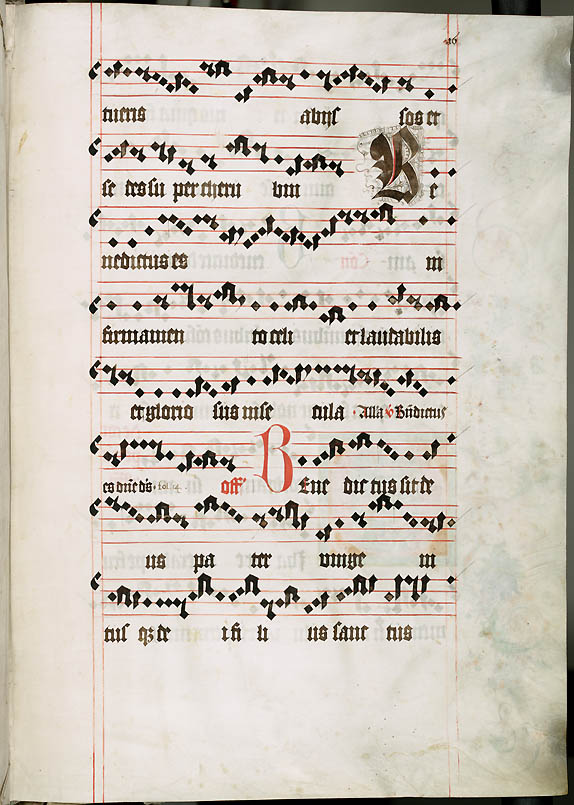 tueris abyss sos et
se des su per cheru bin B e
nedictus es in
firmamen to celi et laudabilis
et glorio sus in se cula Alla V Bndictus
es dne ds fol 14 off B Ene dic tus sit de
us pa ter vnige ni
tus qz de i fi li us sanc tus